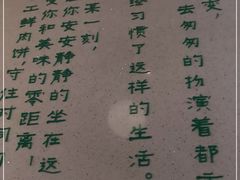 变,
去匆匆的扮演着都
习惯了这样的生活。
某一刻,
你安安静静的坐在这
你和美味的零距离!
工鲜肉饼,守住时